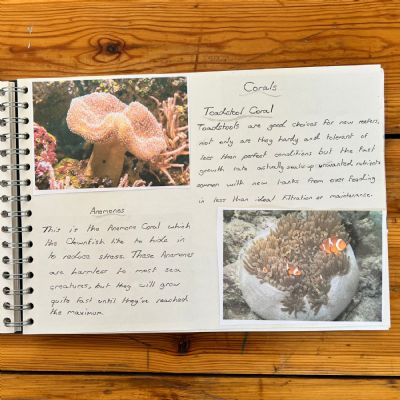 Corals
Toadstool Coral
Toadstools are good choices for new reefers,
not only are they hardy and tolerant of
less than perfect conditions but the fast
growth rate actually soaks up unwanted nutrients
common with new tanks from over feeding
in less than ideal filtration or maintenance.
Anemones
This is the Anemone Coral which
the Clownfish like to hide in
to reduce stress. These Anemones
are harmless to most sea
creatures, but they will grow
quite fast until they've reached
the maximum